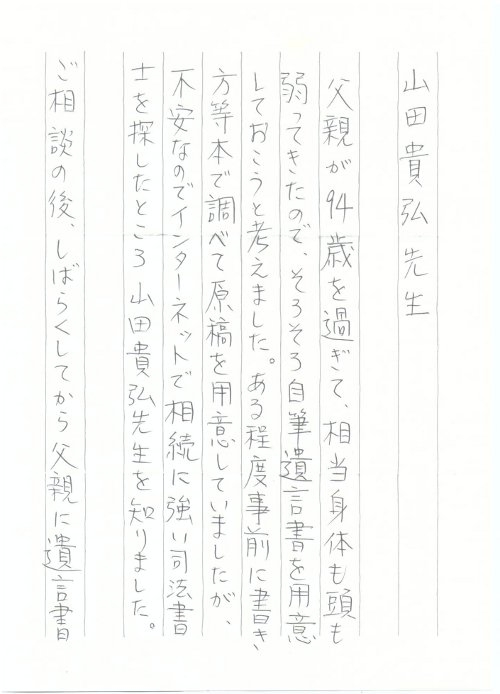 山田貴弘先生
父親が94歳を過ぎて、相当身体も頭も
弱ってきたので、そろそろ自筆遺言書を用意
しておこうと考えました。ある程度事前に書き
方等本で調べて原稿を用意していましたが、
不安なのでインターネットで相続に強い司法書
士を探したところ山田貴弘先生を知りました。
ご相談の後、しばらくしてから父親に遺言書